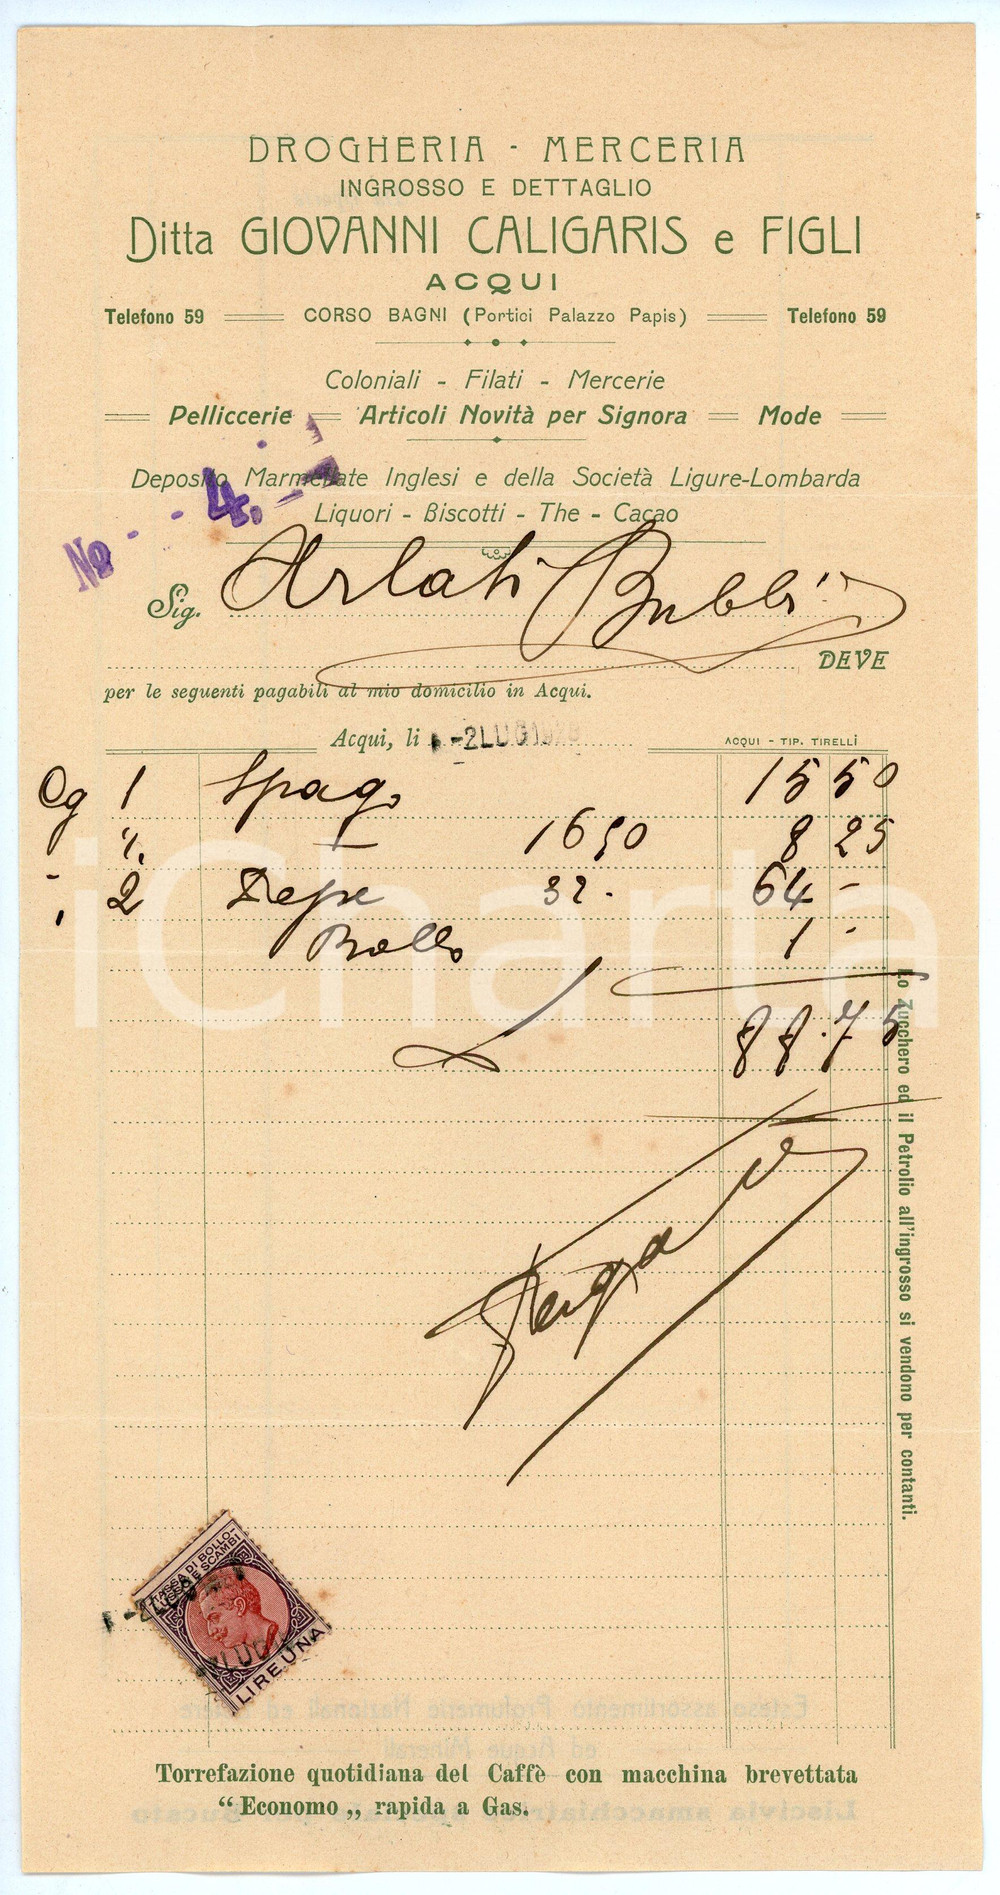 DROGHERIA - MERCERIA
INGROSSO E DETTAGLIO
Ditta GIOVANNI CALIGARIS e FIGLI
ACQUI
Telefono 59 CORSO BAGNI (Portici Palazzo Papis) Telefono 59
Coloniali - Filati - Mercerie
Pelliccerie Articoli Novità per Signora Mode
Deposito Marmellate Inglesi e della Società Ligure-Lombarda
Liquori - Biscotti - The - Cacao
No - - 4. -
Sig. Arlati
DEVE
per le seguenti pagabili al mio domicilio in Acqui.
Acqui, li -2 LUG 1928
ACQUI - TIP. TIRELLI
Cg 1 Spago 15 50
16 50 8 25
2 Pepe 32 - 64 -
Bollo 1 -
L 88.75
Pagato
Lo Zucchero ed il Petrolio all'ingrosso si vendono per contanti.
TASSA DI BOLLO-
LUSSO E SCAMBI
LIRE UNA
Torrefazione quotidiana del Caffè con macchina brevettata
“Economo„ rapida a Gas.
iCharta